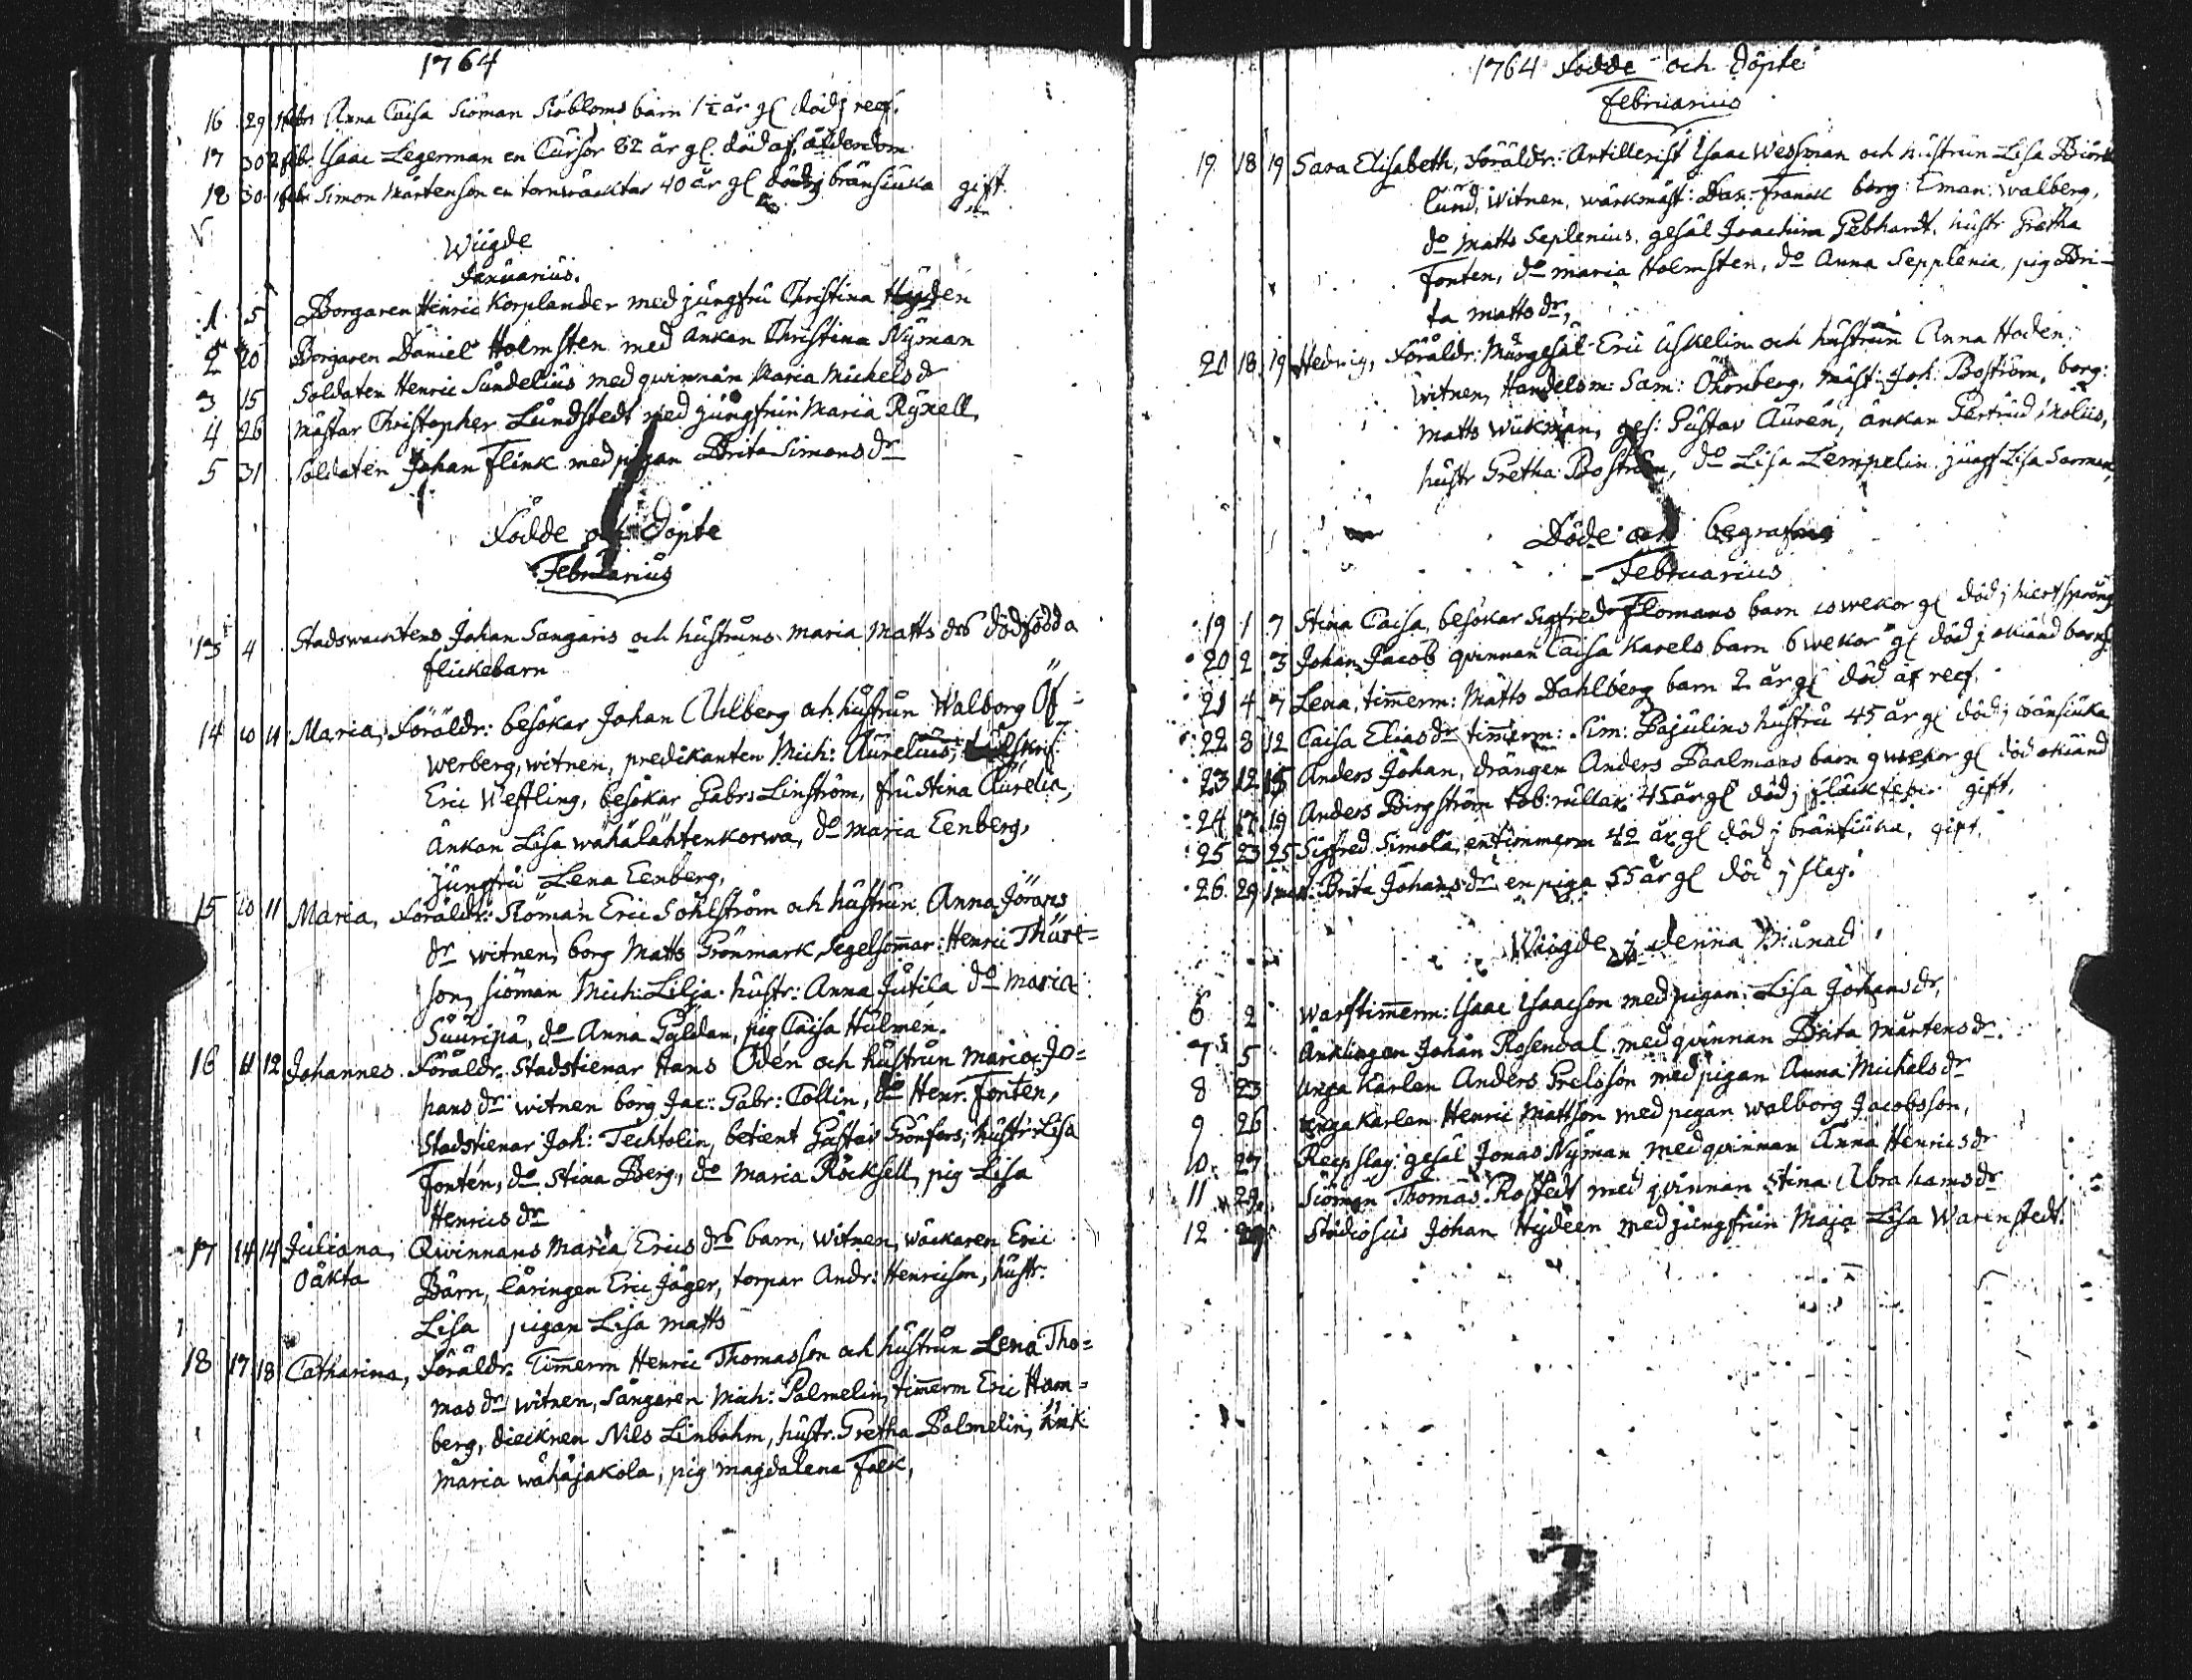 1764
16 29 1 febr Anna Caisa Siöman Siöbloms barn 1½ år gl död j reef.
17 30 2 feb. Isaac Legerman en Cursor 82 år gl. död af ålderdom
18 30 1 febr Simon Mårtenson en tornwäcktar 40 år gl död j bränsiuka gift.
Wiigde
Januarius.
1 5 Borgaren Henric Korplander med jungfru Christina Hyden
2 20 Borgaren Daniel Holmsten med änkan Christina Nyman
3 15 Soldaten Henric Sundelius med qvinnan Maria Michels dr
4 26 Mästar Christopher Lundstedt med jungfrun Maria Ryxell,
5 31 Soldaten Johan Flink med pigan Brita Simons dr
Födde och Döpte
Februarius
13 4 Stadswachtens Johan Sangaris och hustruns Maria Matts drs dödfödda
flickebarn
14 10 11 Maria, Föräldr: besökar Johan Ahlberg och hustrun Walborg Öf=
werberg, witnen, predikanten Mich: Aurelius,
Eric Westling, besökar Gabr. Linström, fru Stina Aurelia,
änkan Lisa wähälähtenkorwa, do Maria Eenberg,
Jungfru Lena Eenberg,
15 10 11 Maria, Föräldr: Siöman Eric Sohlström och hustrun Anna Jörans
dr witnen, borg Matts Grönmark, Segelsömar: Henric Thure=
son, siöman Mich: Lilja. hustr: Anna Jutila do Maria
Suuripä, do Anna Gyldan, pig Caisa Hulmén.
16 11 12 Johannes. Föräldr. Stadstienar Hans Odén och hustrun Maria Jo=
hans dr witnen borg Jac: Gabr: Collin, do Henr. Fontén,
Stadstienar Joh: Techtolin, betient Gustav Grönfors, hustr: Lisa
Fontén, do Stina Berg, do Maria Röcksell, pig Lisa
Henrics dr
17 14 14 Juliana, Qwinnans Maria Erics drs barn, witnen, wäckaren Eric
Oäkta Bärn, läringen Eric Jäger, torpar Andr: Henricson, hustr.
Lisa pigan Lisa Matts
18 17 18 Catharina, Föräldr. Timerm Henric Thomasson och hustrun Lena Tho=
mas dr witnen, Sångaren Mich: Palmelin, timerm Eric Ham=
berg, diecknen Nils Linbohm, hustr. Gretha Palmelin, änk:
Maria wähäjakola, pig Magdalena Falck,
1764 Födde och Döpte
Februarius
19 18 19 Sara Elisabeth, Föräldr: Artillerist Isaac Wessman och hustrun Lisa Biörk
lund, Witnen, wärkmäst: Dan: Franck borg: Eman: Walberg,
do Matts Seplenius, gesäl Joachim Gebhardt, hustr Gretha
Fonten, do Maria Holmsten, do Anna Sepplenia, pig Bri-
ta Matts dr,
20 18 19 Hedwig, Föräldr: Murgesäl Eric Uskelin och hustrun Anna Hoden,
witnen, Handelsm: Sam: Öhrnberg, mäst: Joh: Boström, borg:
Matts Wiikman, ges: Gustav Aurén, änkan Gertrud Molius,
hustr Gretha Boström, do Lisa Lempelin. jungf Lisa Sarman,
Döde och begrafne
Februarius
19 1 7 Stina Caisa, besökar Sigfred Flomans barn 10 wekor gl död j hiertsprång
20 2 3 Johan Jacob qvinnan Caisa Karels barn 6 wekor gl död j okiänd barns
21 4 7 Lena, timerm: Matts Dahlberg barn 2 år gl död af reef.
22 8 12 Caisa Elias dr timerm: Sim: Bajulins hustru 45 år gl död j
23 12 15 Anders Johan, drängen Anders Paalmans barn 9 wekor gl död okiänd
24 17 19 Anders Bergström tob: rullar 45 år gl död j fläckfeber gift,
25 23 25 Sigfred Simola, en timmerm 42 år gl död j bränsiuka, gift,
26 29 1 mart: Brita Johans dr en piga 55 år gl död j slag.
Wiigde j denna Månad
6 2 Warftimerm: Isaac Isaacson med pigan Lisa Johans dr,
7 5 Änklingen Johan Rosendal med qvinnan Brita Mårtens dr.
8 23 Unga Karlen Anders Grelsson med pigan Anna Michels dr
9 26 Unga Karlen Henric Mattson med pigan Walborg Jacobsson,
10 27 Reepslag: gesäl Jonas Nyman med qvinnan Anna Henrics dr
11 29 Siöman Thomas Rostedt med qvinnan Stina Abrahams dr
12 29 Studiosus Johan Hydéen med jungfrun Maja Lisa Warenstedt.